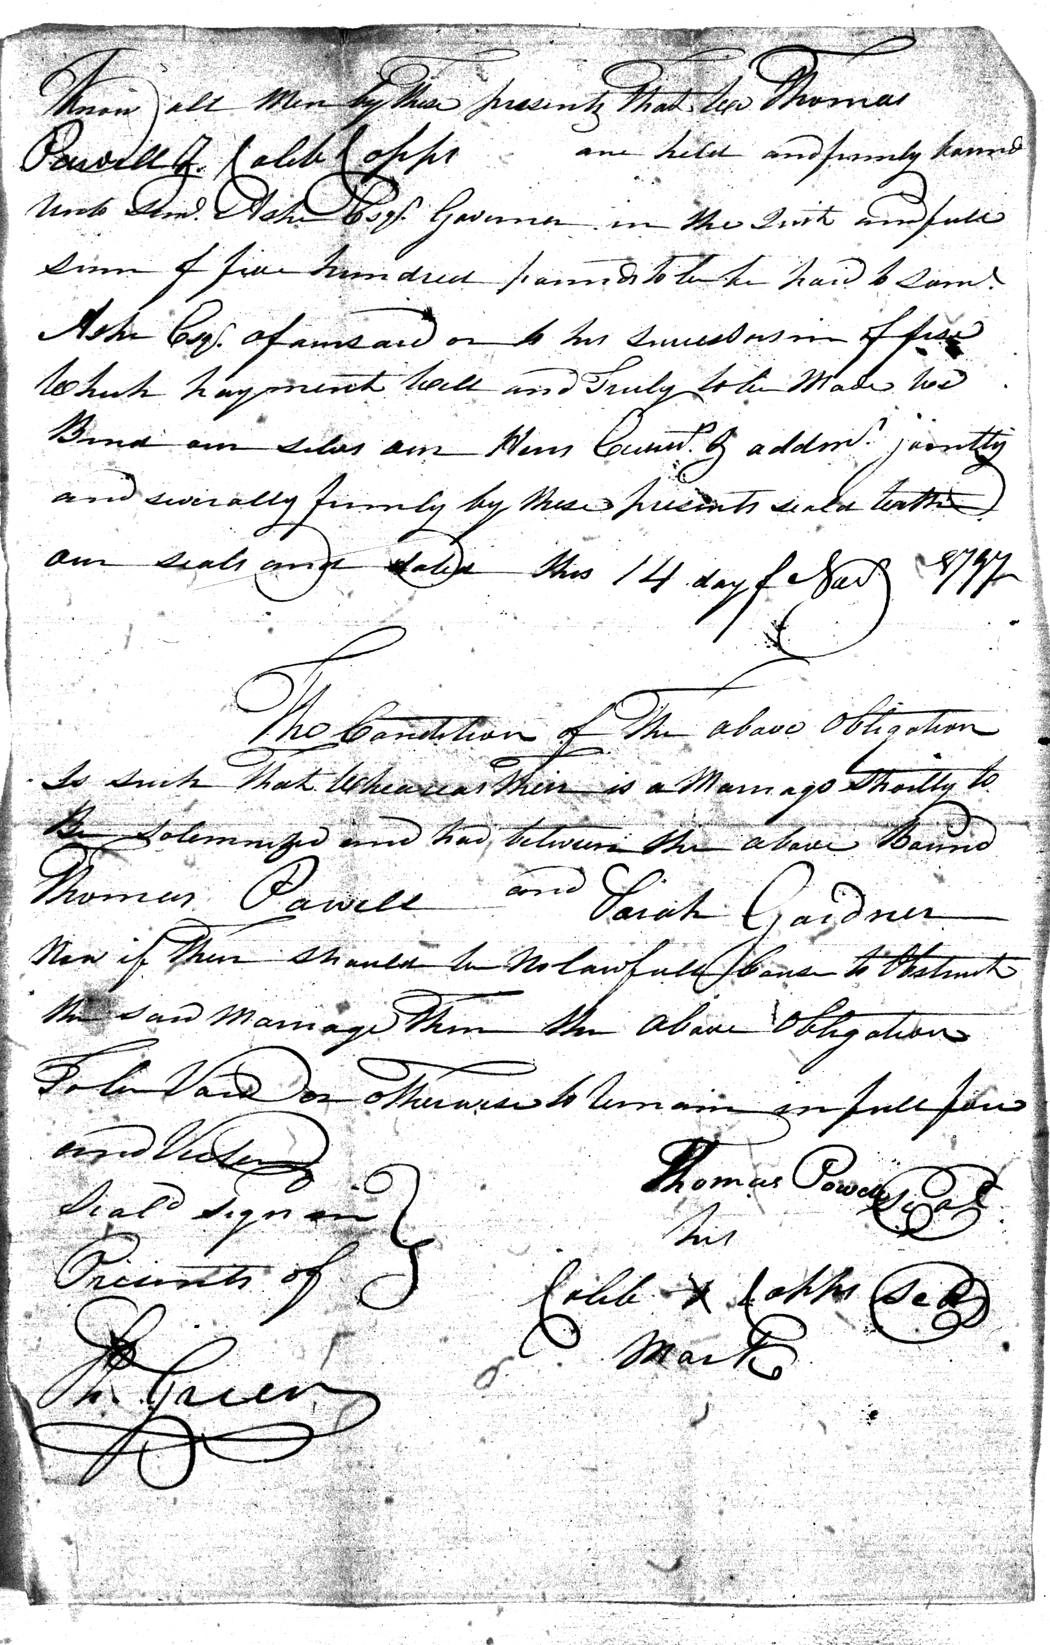 Know all Men by These presents That we Thomas
Powell & Caleb Capps are held and firmly bound
unto Saml. Ashe Esqr. Governer in the Just and full
sum of five hundred pounds to be he paid to Saml.
Ashe Esqr. aforesaid or to his successors in office
Which payment Well and Truly to be Made we
Bind our selves our Heirs Exeutrs. & addmr. jointly
and severally firmly by these presents seald with
our seals and dated this 14 day of Novr 1797
The Condition of The above Obligation
Is such That Wheareas Their is a Marriage Shortly to
Be Solemnized and had between the above Bound
Thomas Powell and Sarah Gardner
Now if Their should be No lawfull Cause to Obstruct
the said Marriage Then the above Obligation
To be Void or otherwise to Remain in full force
and
Seald sign in
Presents of
Thomas Powell Seal
his
Caleb X Capps Seal
Mark
Th. Green